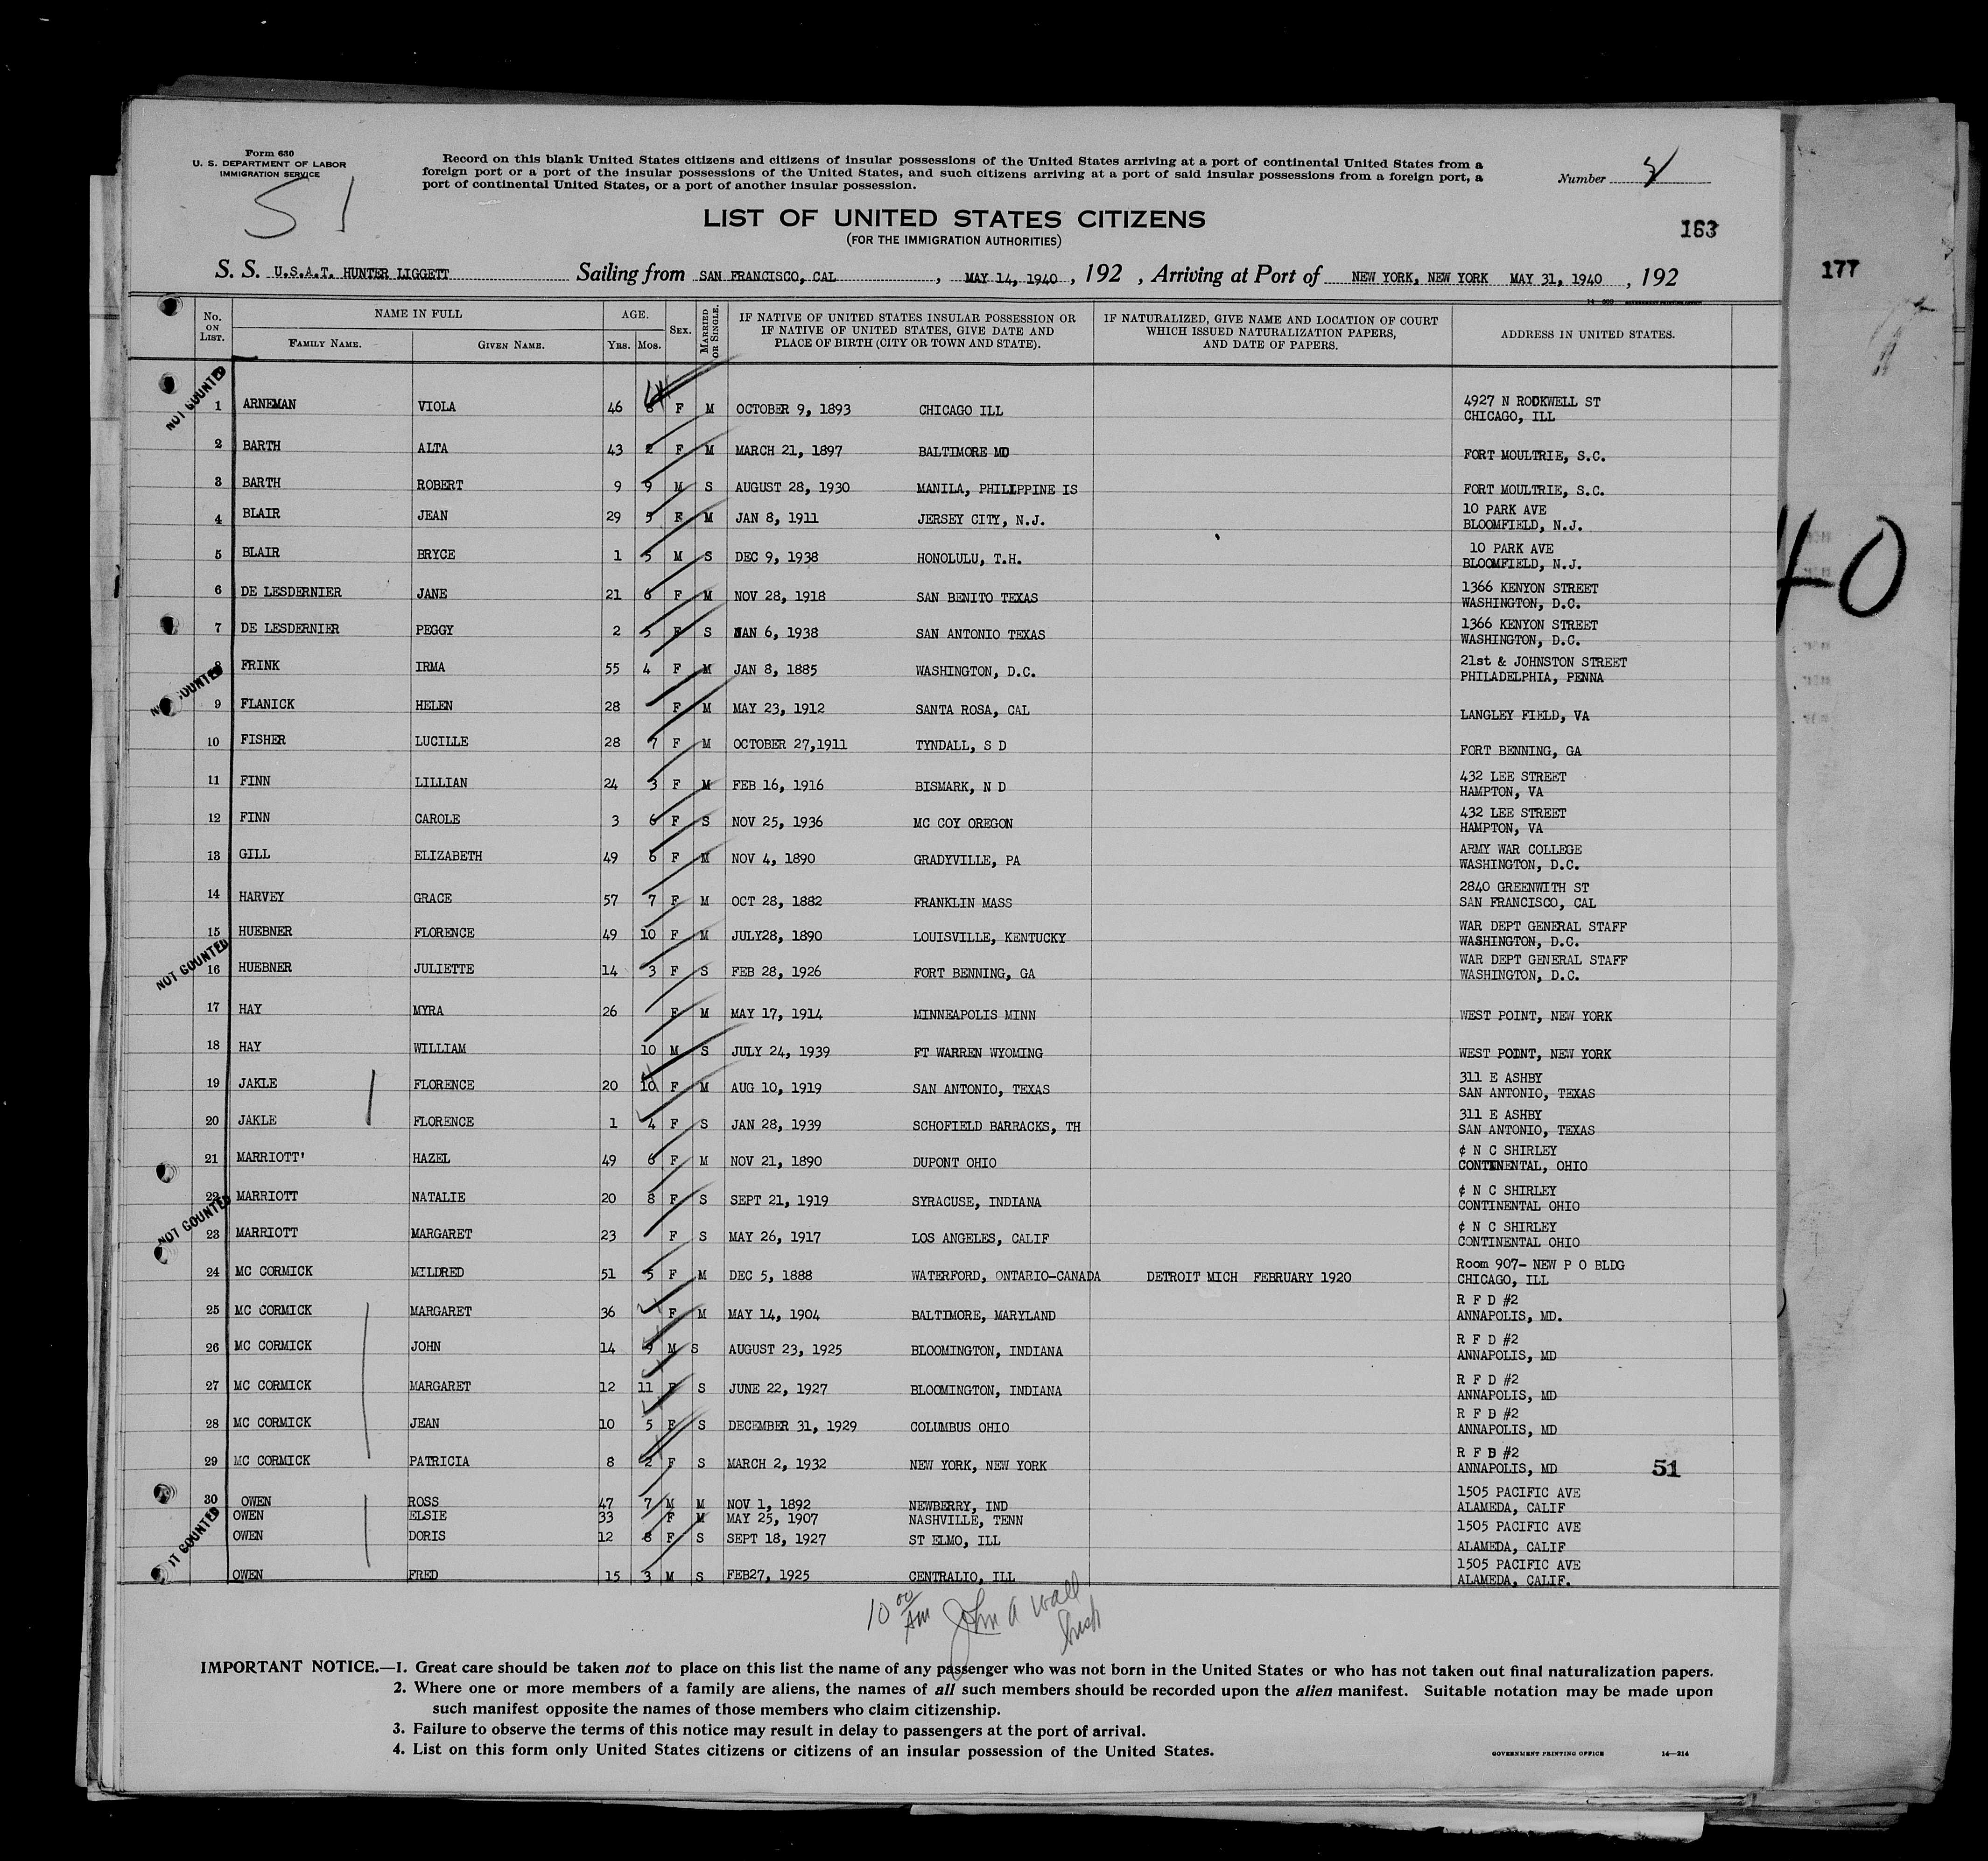 Form 630
U. S. DEPARTMENT OF LABOR
IMMIGRATION SERVICE
51
Record on this blank United States citizens and citizens of insular possessions of the United States arriving at a port of continental United States from a
foreign port or a port of the insular possessions of the United States, and such citizens arriving at a port of said insular possessions from a foreign port, a
port of continental United States, or a port of another insular possession.
Number
LIST OF UNITED STATES CITIZENS
(FOR THE IMMIGRATION AUTHORITIES)
163
177
S. S. U.S.A.T. HUNTER LIGGETT Sailing from SAN FRANCISCO, CAL , MAY 14, 1940 , 192 , Arriving at Port of NEW YORK, NEW YORK MAY 31, 1940 , 192
No. ON LIST. NAME IN FULL FAMILY NAME. GIVEN NAME. AGE. YRS. MOS. SEX. MARRIED OR SINGLE. IF NATIVE OF UNITED STATES INSULAR POSSESSION OR IF NATIVE OF UNITED STATES, GIVE DATE AND PLACE OF BIRTH (CITY OR TOWN AND STATE). IF NATURALIZED, GIVE NAME AND LOCATION OF COURT WHICH ISSUED NATURALIZATION PAPERS, AND DATE OF PAPERS. ADDRESS IN UNITED STATES.
NOT COUNTED
1 ARNEMAN VIOLA 46 F M OCTOBER 9, 1893 CHICAGO ILL 4927 N ROCKWELL ST
CHICAGO, ILL
2 BARTH ALTA 43 2 F M MARCH 21, 1897 BALTIMORE MD FORT MOULTRIE, S.C.
3 BARTH ROBERT 9 9 M S AUGUST 28, 1930 MANILA, PHILIPPINE IS FORT MOULTRIE, S.C.
4 BLAIR JEAN 29 5 F M JAN 8, 1911 JERSEY CITY, N.J. 10 PARK AVE
BLOOMFIELD, N.J.
5 BLAIR BRYCE 1 5 M S DEC 9, 1938 HONOLULU, T.H. 10 PARK AVE
BLOOMFIELD, N.J.
6 DE LESDERNIER JANE 21 6 F M NOV 28, 1918 SAN BENITO TEXAS 1366 KENYON STREET
WASHINGTON, D.C.
7 DE LESDERNIER PEGGY 2 5 F S JAN 6, 1938 SAN ANTONIO TEXAS 1366 KENYON STREET
WASHINGTON, D.C.
8 FRINK IRMA 55 4 F M JAN 8, 1885 WASHINGTON, D.C. 21st & JOHNSTON STREET
PHILADELPHIA, PENNA
9 FLANICK HELEN 28 F M MAY 23, 1912 SANTA ROSA, CAL LANGLEY FIELD, VA
10 FISHER LUCILLE 28 7 F M OCTOBER 27,1911 TYNDALL, S D FORT BENNING, GA
11 FINN LILLIAN 24 3 F M FEB 16, 1916 BISMARK, N D 432 LEE STREET
HAMPTON, VA
12 FINN CAROLE 3 6 F S NOV 25, 1936 MC COY OREGON 432 LEE STREET
HAMPTON, VA
13 GILL ELIZABETH 49 6 F M NOV 4, 1890 GRADYVILLE, PA ARMY WAR COLLEGE
WASHINGTON, D.C.
14 HARVEY GRACE 57 7 F M OCT 28, 1882 FRANKLIN MASS 2840 GREENWITH ST
SAN FRANCISCO, CAL
15 HUEBNER FLORENCE 49 10 F M JULY28, 1890 LOUISVILLE, KENTUCKY WAR DEPT GENERAL STAFF
WASHINGTON, D.C.
NOT COUNTED
16 HUEBNER JULIETTE 14 3 F S FEB 28, 1926 FORT BENNING, GA WAR DEPT GENERAL STAFF
WASHINGTON, D.C.
17 HAY MYRA 26 F M MAY 17, 1914 MINNEAPOLIS MINN WEST POINT, NEW YORK
18 HAY WILLIAM 10 M S JULY 24, 1939 FT WARREN WYOMING WEST POINT, NEW YORK
19 JAKLE FLORENCE 20 10 F M AUG 10, 1919 SAN ANTONIO, TEXAS 311 E ASHBY
SAN ANTONIO, TEXAS
20 JAKLE FLORENCE 1 4 F S JAN 28, 1939 SCHOFIELD BARRACKS, TH 311 E ASHBY
SAN ANTONIO, TEXAS
21 MARRIOTT' HAZEL 49 6 F M NOV 21, 1890 DUPONT OHIO ¢ N C SHIRLEY
CONTINENTAL, OHIO
22 MARRIOTT NATALIE 20 8 F S SEPT 21, 1919 SYRACUSE, INDIANA ¢ N C SHIRLEY
CONTINENTAL OHIO
NOT COUNTED
23 MARRIOTT MARGARET 23 F S MAY 26, 1917 LOS ANGELES, CALIF ¢ N C SHIRLEY
CONTINENTAL OHIO
24 MC CORMICK MILDRED 51 5 F M DEC 5, 1888 WATERFORD, ONTARIO-CANADA DETROIT MICH FEBRUARY 1920 Room 907- NEW P O BLDG
CHICAGO, ILL
25 MC CORMICK MARGARET 36 F M MAY 14, 1904 BALTIMORE, MARYLAND R F D #2
ANNAPOLIS, MD.
26 MC CORMICK JOHN 14 9 M S AUGUST 23, 1925 BLOOMINGTON, INDIANA R F D #2
ANNAPOLIS, MD
27 MC CORMICK MARGARET 12 11 F S JUNE 22, 1927 BLOOMINGTON, INDIANA R F D #2
ANNAPOLIS, MD
28 MC CORMICK JEAN 10 5 F S DECEMBER 31, 1929 COLUMBUS OHIO R F D #2
ANNAPOLIS, MD
29 MC CORMICK PATRICIA 8 2 F S MARCH 2, 1932 NEW YORK, NEW YORK R F D #2
ANNAPOLIS, MD 51
30 OWEN ROSS 47 7 M M NOV 1, 1892 NEWBERRY, IND 1505 PACIFIC AVE
ALAMEDA, CALIF
OWEN ELSIE 33 F M MAY 25, 1907 NASHVILLE, TENN 1505 PACIFIC AVE
OWEN DORIS 12 8 F S SEPT 18, 1927 ST ELMO, ILL
ALAMEDA, CALIF
OWEN FRED 15 3 M S FEB27, 1925 CENTRALIO, ILL 1505 PACIFIC AVE
ALAMEDA, CALIF.
10 00 AM John A Wall
IMPORTANT NOTICE.—1. Great care should be taken not to place on this list the name of any passenger who was not born in the United States or who has not taken out final naturalization papers.
2. Where one or more members of a family are aliens, the names of all such members should be recorded upon the alien manifest. Suitable notation may be made upon
such manifest opposite the names of those members who claim citizenship.
3. Failure to observe the terms of this notice may result in delay to passengers at the port of arrival.
4. List on this form only United States citizens or citizens of an insular possession of the United States.
GOVERNMENT PRINTING OFFICE 14—214
40